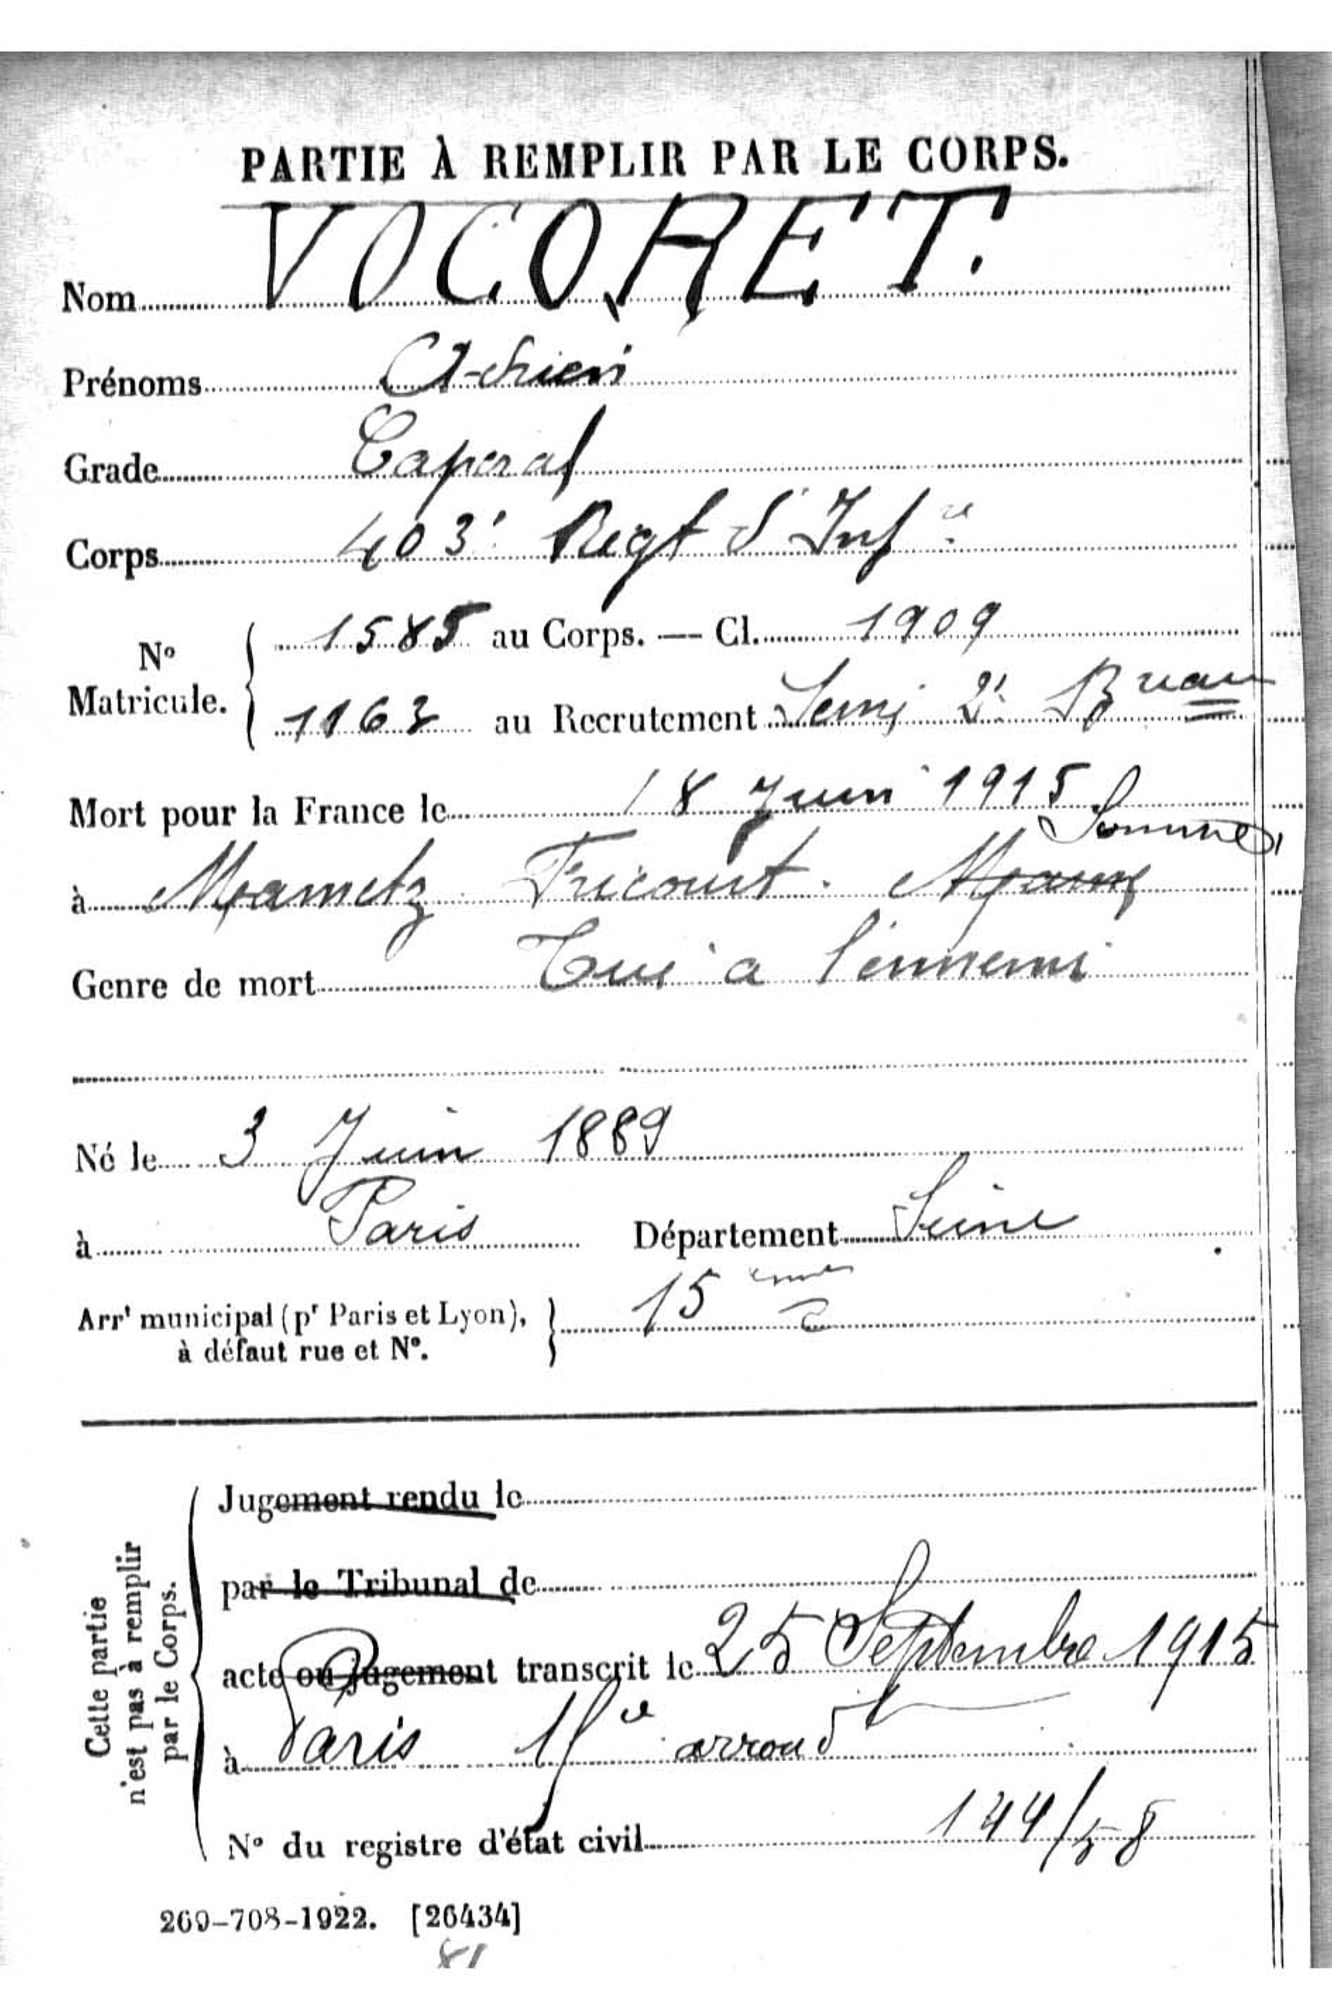 PARTIE À REMPLIR PAR LE CORPS.
Nom VOCORET.
Prénoms Adrien
Grade Caporal
Corps 403e Regt d'Infie
1585 au Corps. — Cl. 1909
No
Matricule.
1163 au Recrutement Seine 2e Bureau
Mort pour la France le 18 Juin 1915
Somme
à Mametz Fricourt. Marne
Genre de mort Tué à l'ennemi
Né le 3 Juin 1889
à Paris Département Seine
Arrt municipal (pr Paris et Lyon),
à défaut rue et No.
15 eme
Cette partie
n'est pas à remplir
par le Corps.
Jugement rendu le
par le Tribunal de
acte ou jugement transcrit le 25 Septembre 1915
à Paris 15e arrondt
No du registre d'état civil 144/58
269-708-1922. [26434]